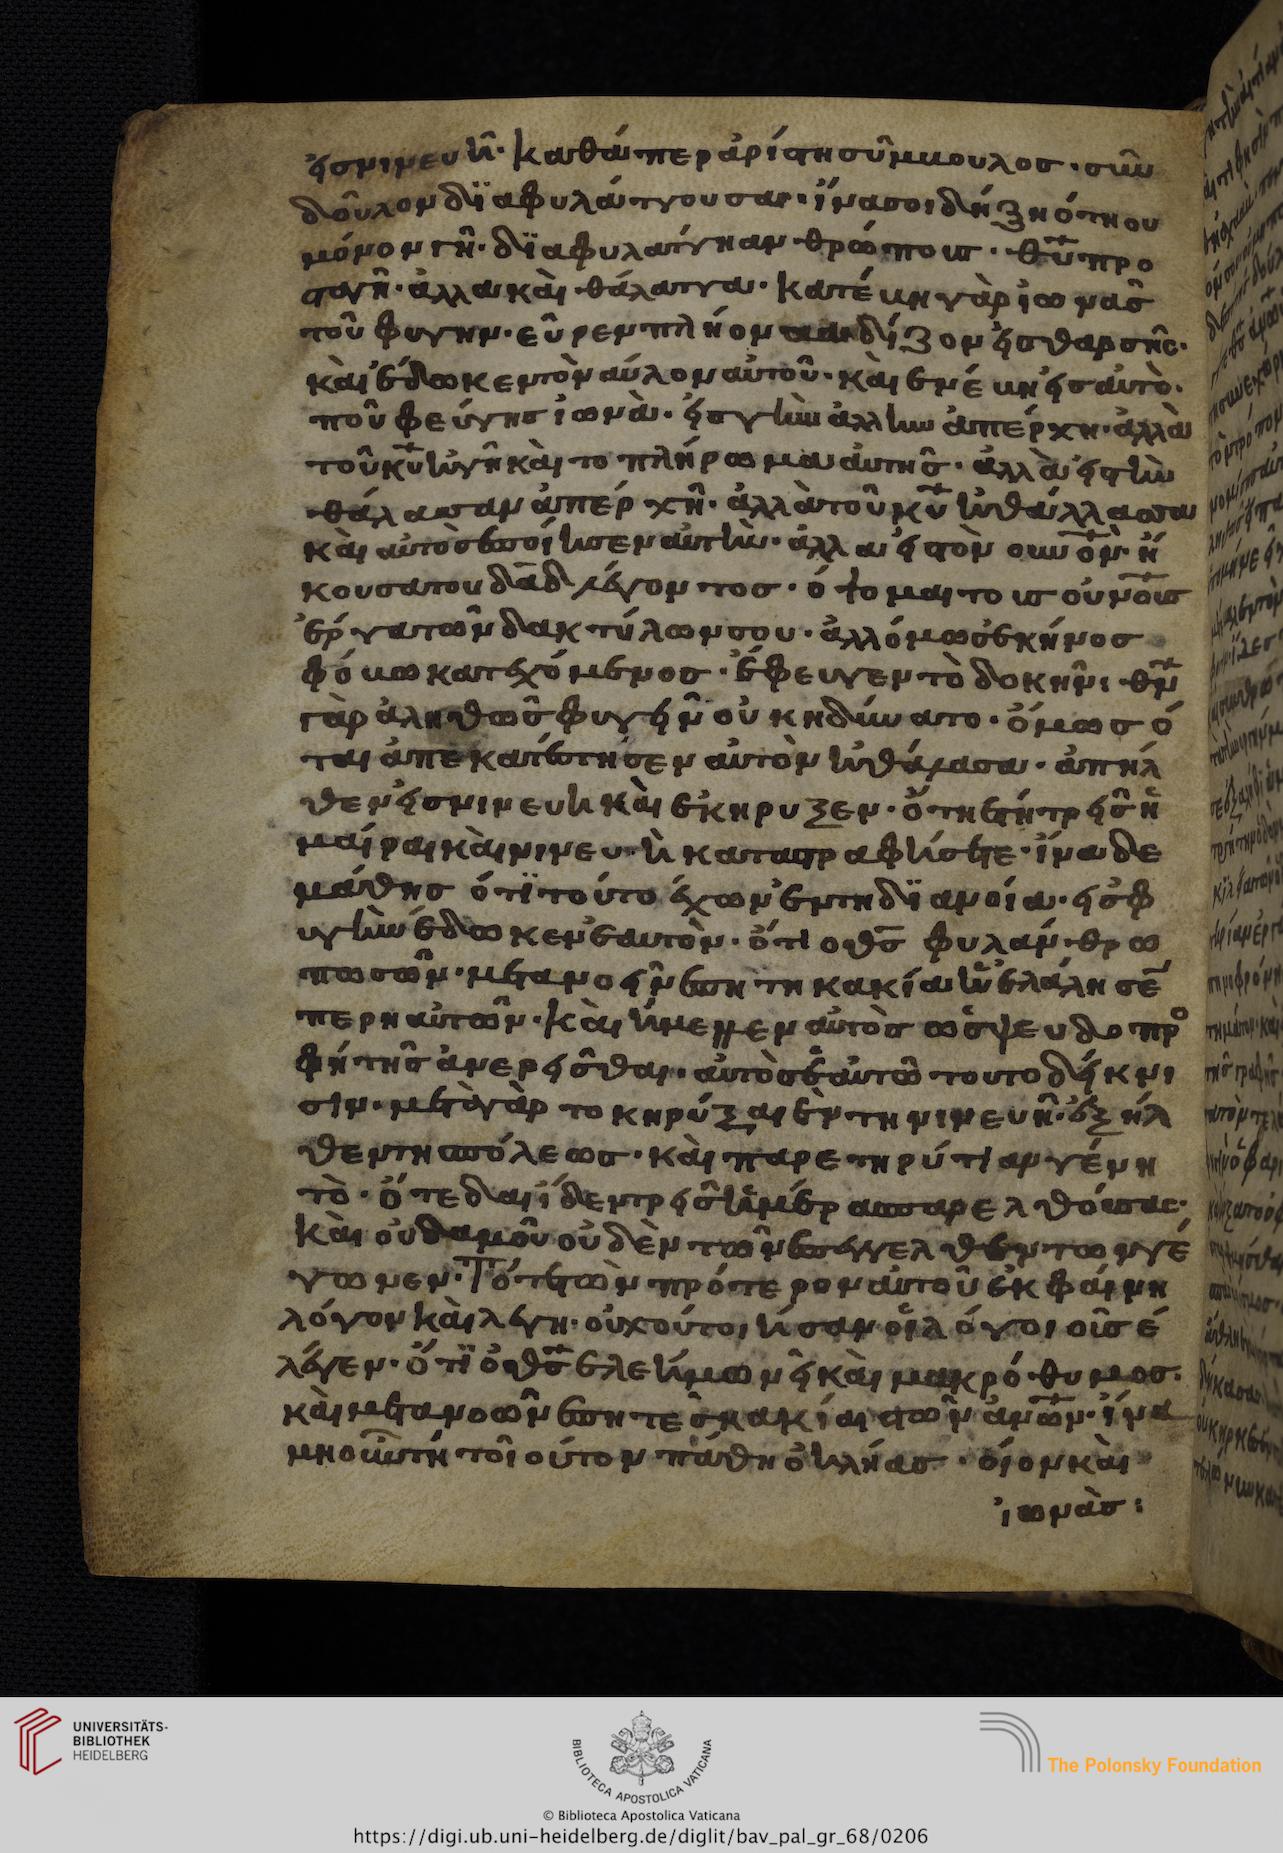 ἐσνινευὴ· καθάπερ ἀρίστη σῦμβουλοσ· σῦν
δοῦλον δϊαφυλάττουσαν· ἵνα σοι δήξη ὅτη οὐ
μόνον γῆ· δϊαφυλάττη ἀνθρώποισ· θῦ προ
σταγῆ· ἀλλα καὶ θάλαττα· κατέβη γὰρ ἰωνᾶσ
τοῦ φυγην· εὗρεν πλήον βαδίζον ἐσ θαρσῆσ·
καὶ ἔδωκεν τὸν αύλον αὐτοῦ· καὶ ἐνέβη ἐσ αὐτὸ·
ποῦ φεύγησ ἰωνὰ· ἐσ γὴν ἀλλην ἀπέρχη· ἀλλὰ
τοῦ κῦ ἡ γῆ καὶ το πλήρωμα αὐτησ· ἀλλὰ ἐσ τὴν
θάλασαν ἀπέρχῆ· ἀλλὰ τοῦ κῦ ἡ θάλλασσα
καὶ αὐτὸσ ἐποίησεν αὐτὴν· ἀλλα ἐσ τὸν οὐνὸν· ἤ
κουσασ του δᾶδ λέγοντοσ· ὄψομαι τοισ οὐνοῖσ
ἔργα τῶν δακτύλων σου· ἀλλ ὅμωσ ἐκήνοσ
φόβω κατεχόμενοσ· ἔφευγεν τὸ δοκην· θν
γὰρ ἀληθῶσ φυγῆν οὐκ ηδύνατο· ὅμωσ ὅ
ται ἀπεκατέστησεν αὐτὸν ἡ θάλασα· ἀπηλ
θεν ἐσ νινευὴ καὶ ἐκηρυξεν· ὅτη ἔτη τρῆσ ἡ
μαίραι καὶ νινευὴ καταστραφήσετε· ἵνα δε
μάθησ ότϊ τοῦτο ἔχων ἐν τη δϊανοία· ἐσ φ
υγὴν ἔδωκεν ἑαυτὸν· ὅτι ο θσ φυλάνθρω
πωσ ὢν· μετανοῆν ἐπη τη κακία ἣν ἐλάλησε
περη αὐτῶν· καὶ ἤμελλεν αὐτὸσ ωσ ψευδοπρο
φήτησ ἀνερῆσθαι· αὐτὸσ ἑαυτῶ τουτο δήκνι
σιν· μετὸ γὰρ το κηρύξαι ἐν τη νινευῆ· ἐξήλ
θεν τησ πόλεωσ· καὶ παρετηρύτι αν γένη
τὸ· ὅτε δαι ἵδεν τρῆσ ἡμέρασ παρελθούσαε·
καὶ οὐδαμοῦ οὐδὲν τῶν ἐπηγγελθέντων γέ
γωνεν· Τότε τὼν πρότερον αὐτοῦ ἐκφαίνη
λόγον καὶ λέγη· οὐχ οὗτοι ἦσαν οἱ λόγοι οὗσ ἔ
λέγεν· ὅτϊ ὁ θσ ἐλεήμων ἐ καὶ μακρόθυμοσ·
καὶ μετανοῶν ἐπη τεσ κακίαι στῶν ἀνῶν· ἵνα
μη οὖν τη τοι οὗτον πάθη ὁ ἡλήασ· οἷον καὶ
ἰωνὰσ:
UNIVERSITÄTS-
BIBLIOTHEK
HEIDELBERG
BIBLIOTECA APOSTOLICA VATICANA
The Polonsky Foundation
© Biblioteca Apostolica Vaticana
https://digi.ub.uni-heidelberg.de/diglit/bav_pal_gr_68/0206